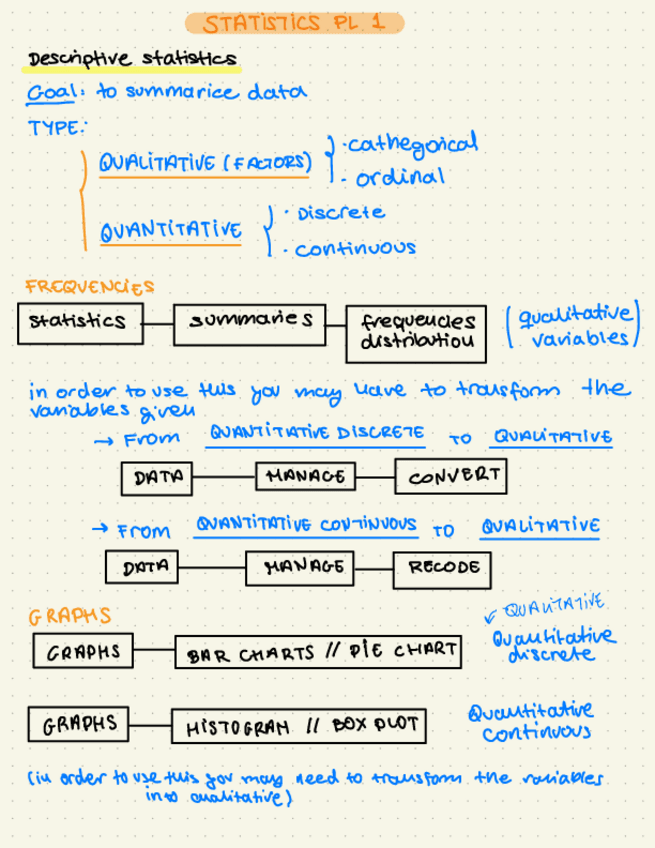 STATISTICS PL 1
Descriptive statistics
Goal: to summarice data
TYPE:
QUALITATIVE (FACTORS)
· cathegorical
· ordinal
QUANTITATIVE
· Discrete
· continuous
FREQUENCIES
statistics summaries frequencies distribution
(qualitative variables)
in order to use this you may have to transform the
variables given
→ From QUANTITATIVE DISCRETE TO QUALITATIVE
DATA MANAGE CONVERT
→ From QUANTITATIVE CONTINUOUS TO QUALITATIVE
DATA MANAGE RECODE
GRAPHS
↙ QUALITATIVE
GRAPHS BAR CHARTS // PIE CHART
Quantitative
discrete
GRAPHS HISTOGRAM // BOX PLOT
Quantitative
continuous
(in order to use this you may need to transform the variables
into qualitative)